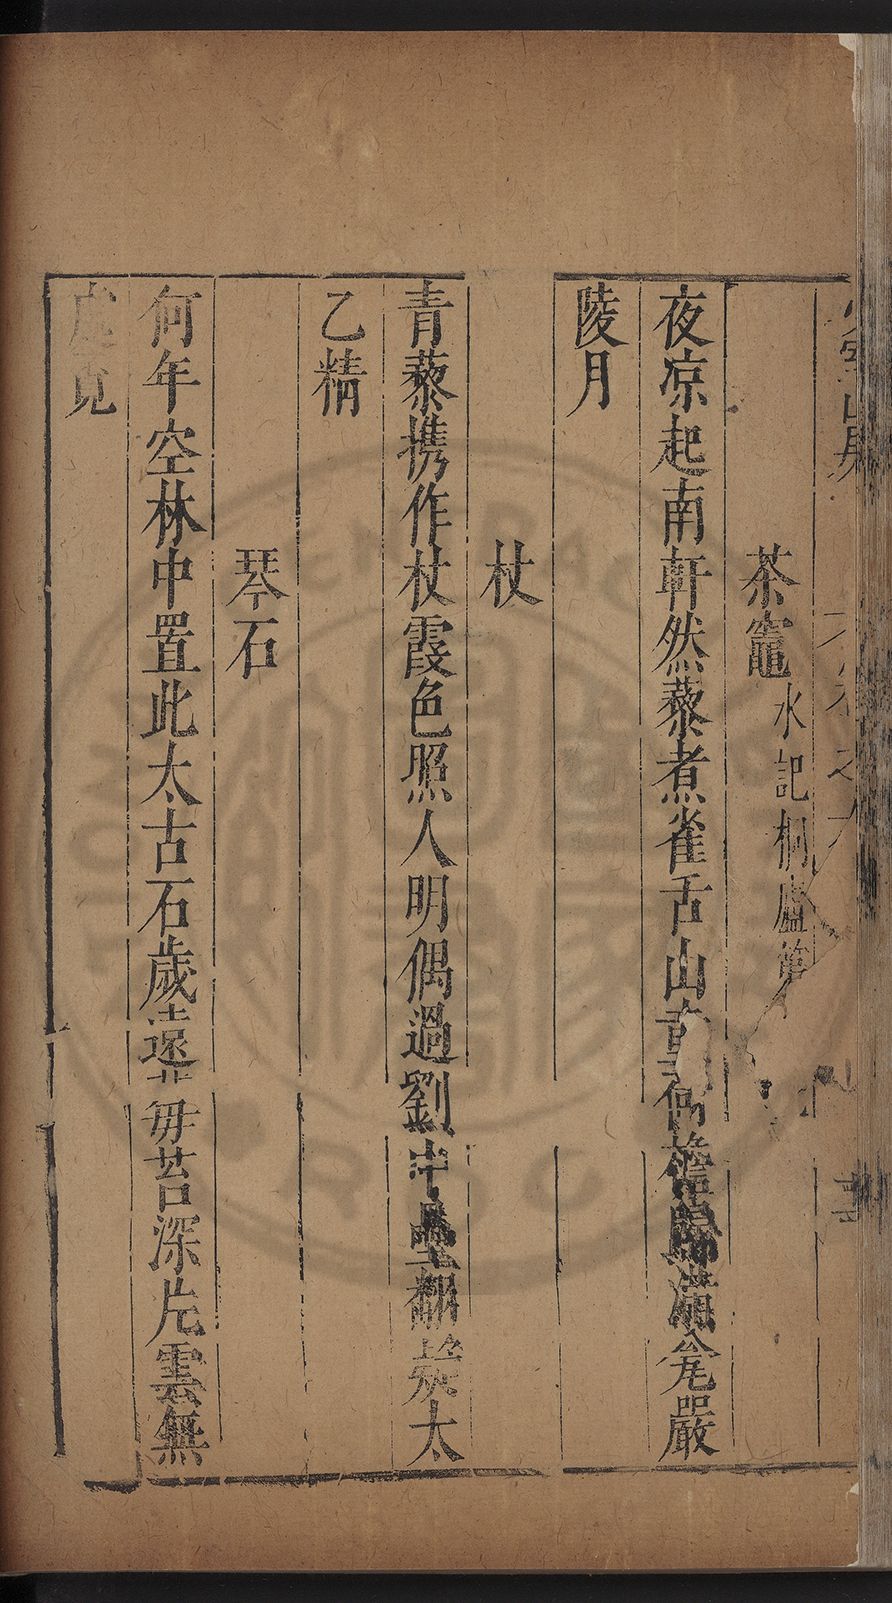 茶竈 水記桐廬第
夜凉起南軒然藜煮雀舌山童荷檐歸滿瓮嚴
陵月
杖
青藜携作杖霞色照人明偶過劉中壘翻疑太
乙精
琴石
何年空林中置此太古石歲遠苺苔深片雲無
處覓